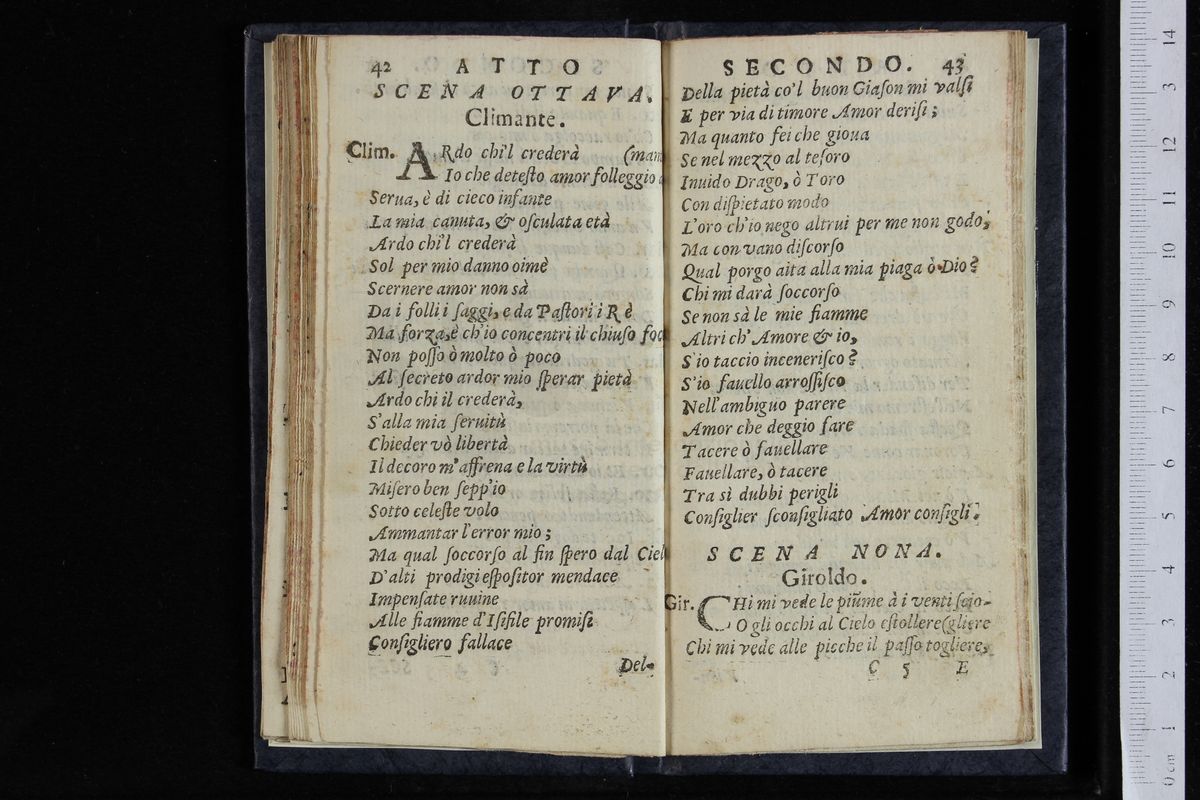 42 ATTO
SCENA OTTAVA.
Climante.
Clim. ARdo chi'l crederà (man
Io che deteſto amor folleggio a
Serua, è di cieco infante
La mia canuta, & oſculata età
Ardo chi'l crederà
Sol per mio danno oimè
Scernere amor non sà
Da i folli i ſaggi, e da Paſtori i Rè
Ma forza, è ch'io concentri il chiuſo foc
Non poſſo ò molto ò poco
Al ſecreto ardor mio ſperar pietà
Ardo chi il crederà,
S'alla mia ſeruitù
Chieder vò libertà
Il decoro m'affrena e la virtù
Miſero ben ſepp'io
Sotto celeſte volo
Ammantar l'error mio;
Ma qual ſoccorſo al fin ſpero dal Ciel
D'alti prodigi eſpoſitor mendace
Impenſate ruuine
Alle fiamme d'Iſifile promiſi
Conſigliero fallace
Del-
SECONDO. 43
Della pietà co'l buon Giaſon mi valſi
E per via di timore Amor deriſi;
Ma quanto fei che gioua
Se nel mezzo al teſoro
Inuido Drago, ò Toro
Con diſpietato modo
L'oro ch'io nego altrui per me non godo,
Ma con vano diſcorſo
Qual porgo aita alla mia piaga ò Dio?
Chi mi darà ſoccorſo
Se non sà le mie fiamme
Altri ch'Amore & io,
S'io taccio inceneriſco?
S'io fauello arroſſiſco
Nell'ambiguo parere
Amor che deggio fare
Tacere ò fauellare
Fauellare, ò tacere
Tra sì dubbi perigli
Conſiglier ſconſigliato Amor conſigli.
SCENA NONA.
Giroldo.
Gir. CHi mi vede le piūme à i venti ſcio-
O gli occhi al Cielo eſtollere (gliere
Chi mi vede alle picche il paſſo togliere,
C 5 E
0 cm 1 2 3 4 5 6 7 8 9 10 11 12 13 14